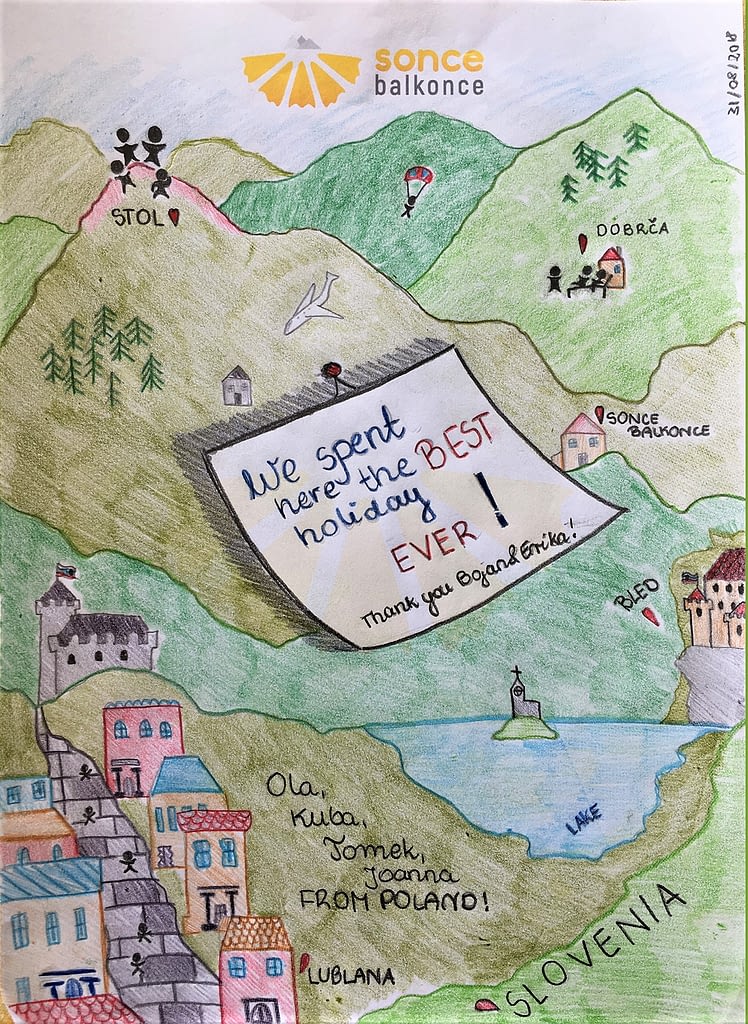 31/08/2018
sonce
balkonce
STOL
DOBRČA
SONCE
BALKONCE
We spent
here the BEST
holiday
EVER!
Thank you Bojan and Erika!
BLED
LAKE
Ola,
Kuba,
Tomek,
Joanna
FROM POLAND!
LUBLANA
SLOVENIA